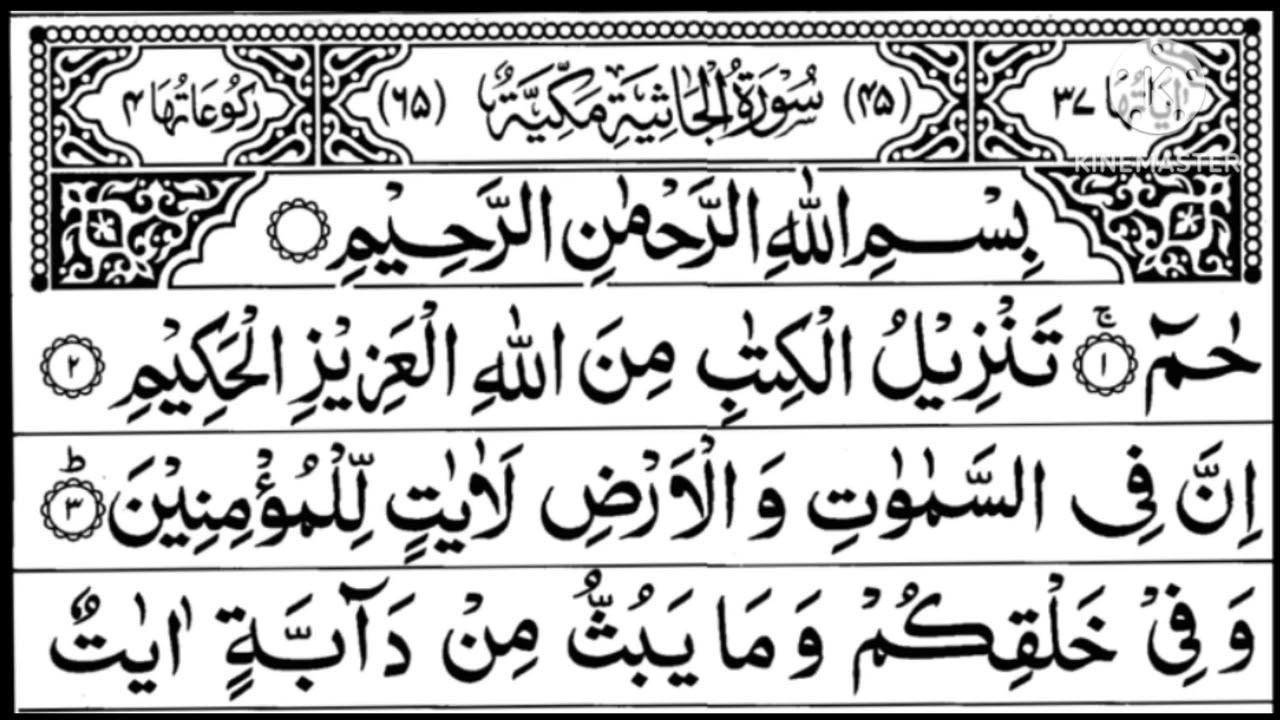 اٰیَاتُهَا ۳۷ (۴۵) سُوْرَةُ الْجَاثِیَةِ مَكِّیَّةٌ (۶۵) رُكُوْعَاتُهَا ۴
KINEMASTER
بِسْمِ اللّٰهِ الرَّحْمٰنِ الرَّحِیْمِ
حٰمٓ ۚ‏﴿۱﴾ تَنْزِیْلُ الْكِتٰبِ مِنَ اللّٰهِ الْعَزِیْزِ الْحَكِیْمِ ﴿۲﴾
اِنَّ فِی السَّمٰوٰتِ وَ الْاَرْضِ لَاٰیٰتٍ لِّلْمُؤْمِنِیْنَ ؕ﴿۳﴾
وَ فِیْ خَلْقِكُمْ وَ مَا یَبُثُّ مِنْ دَآبَّةٍ اٰیٰتٌ